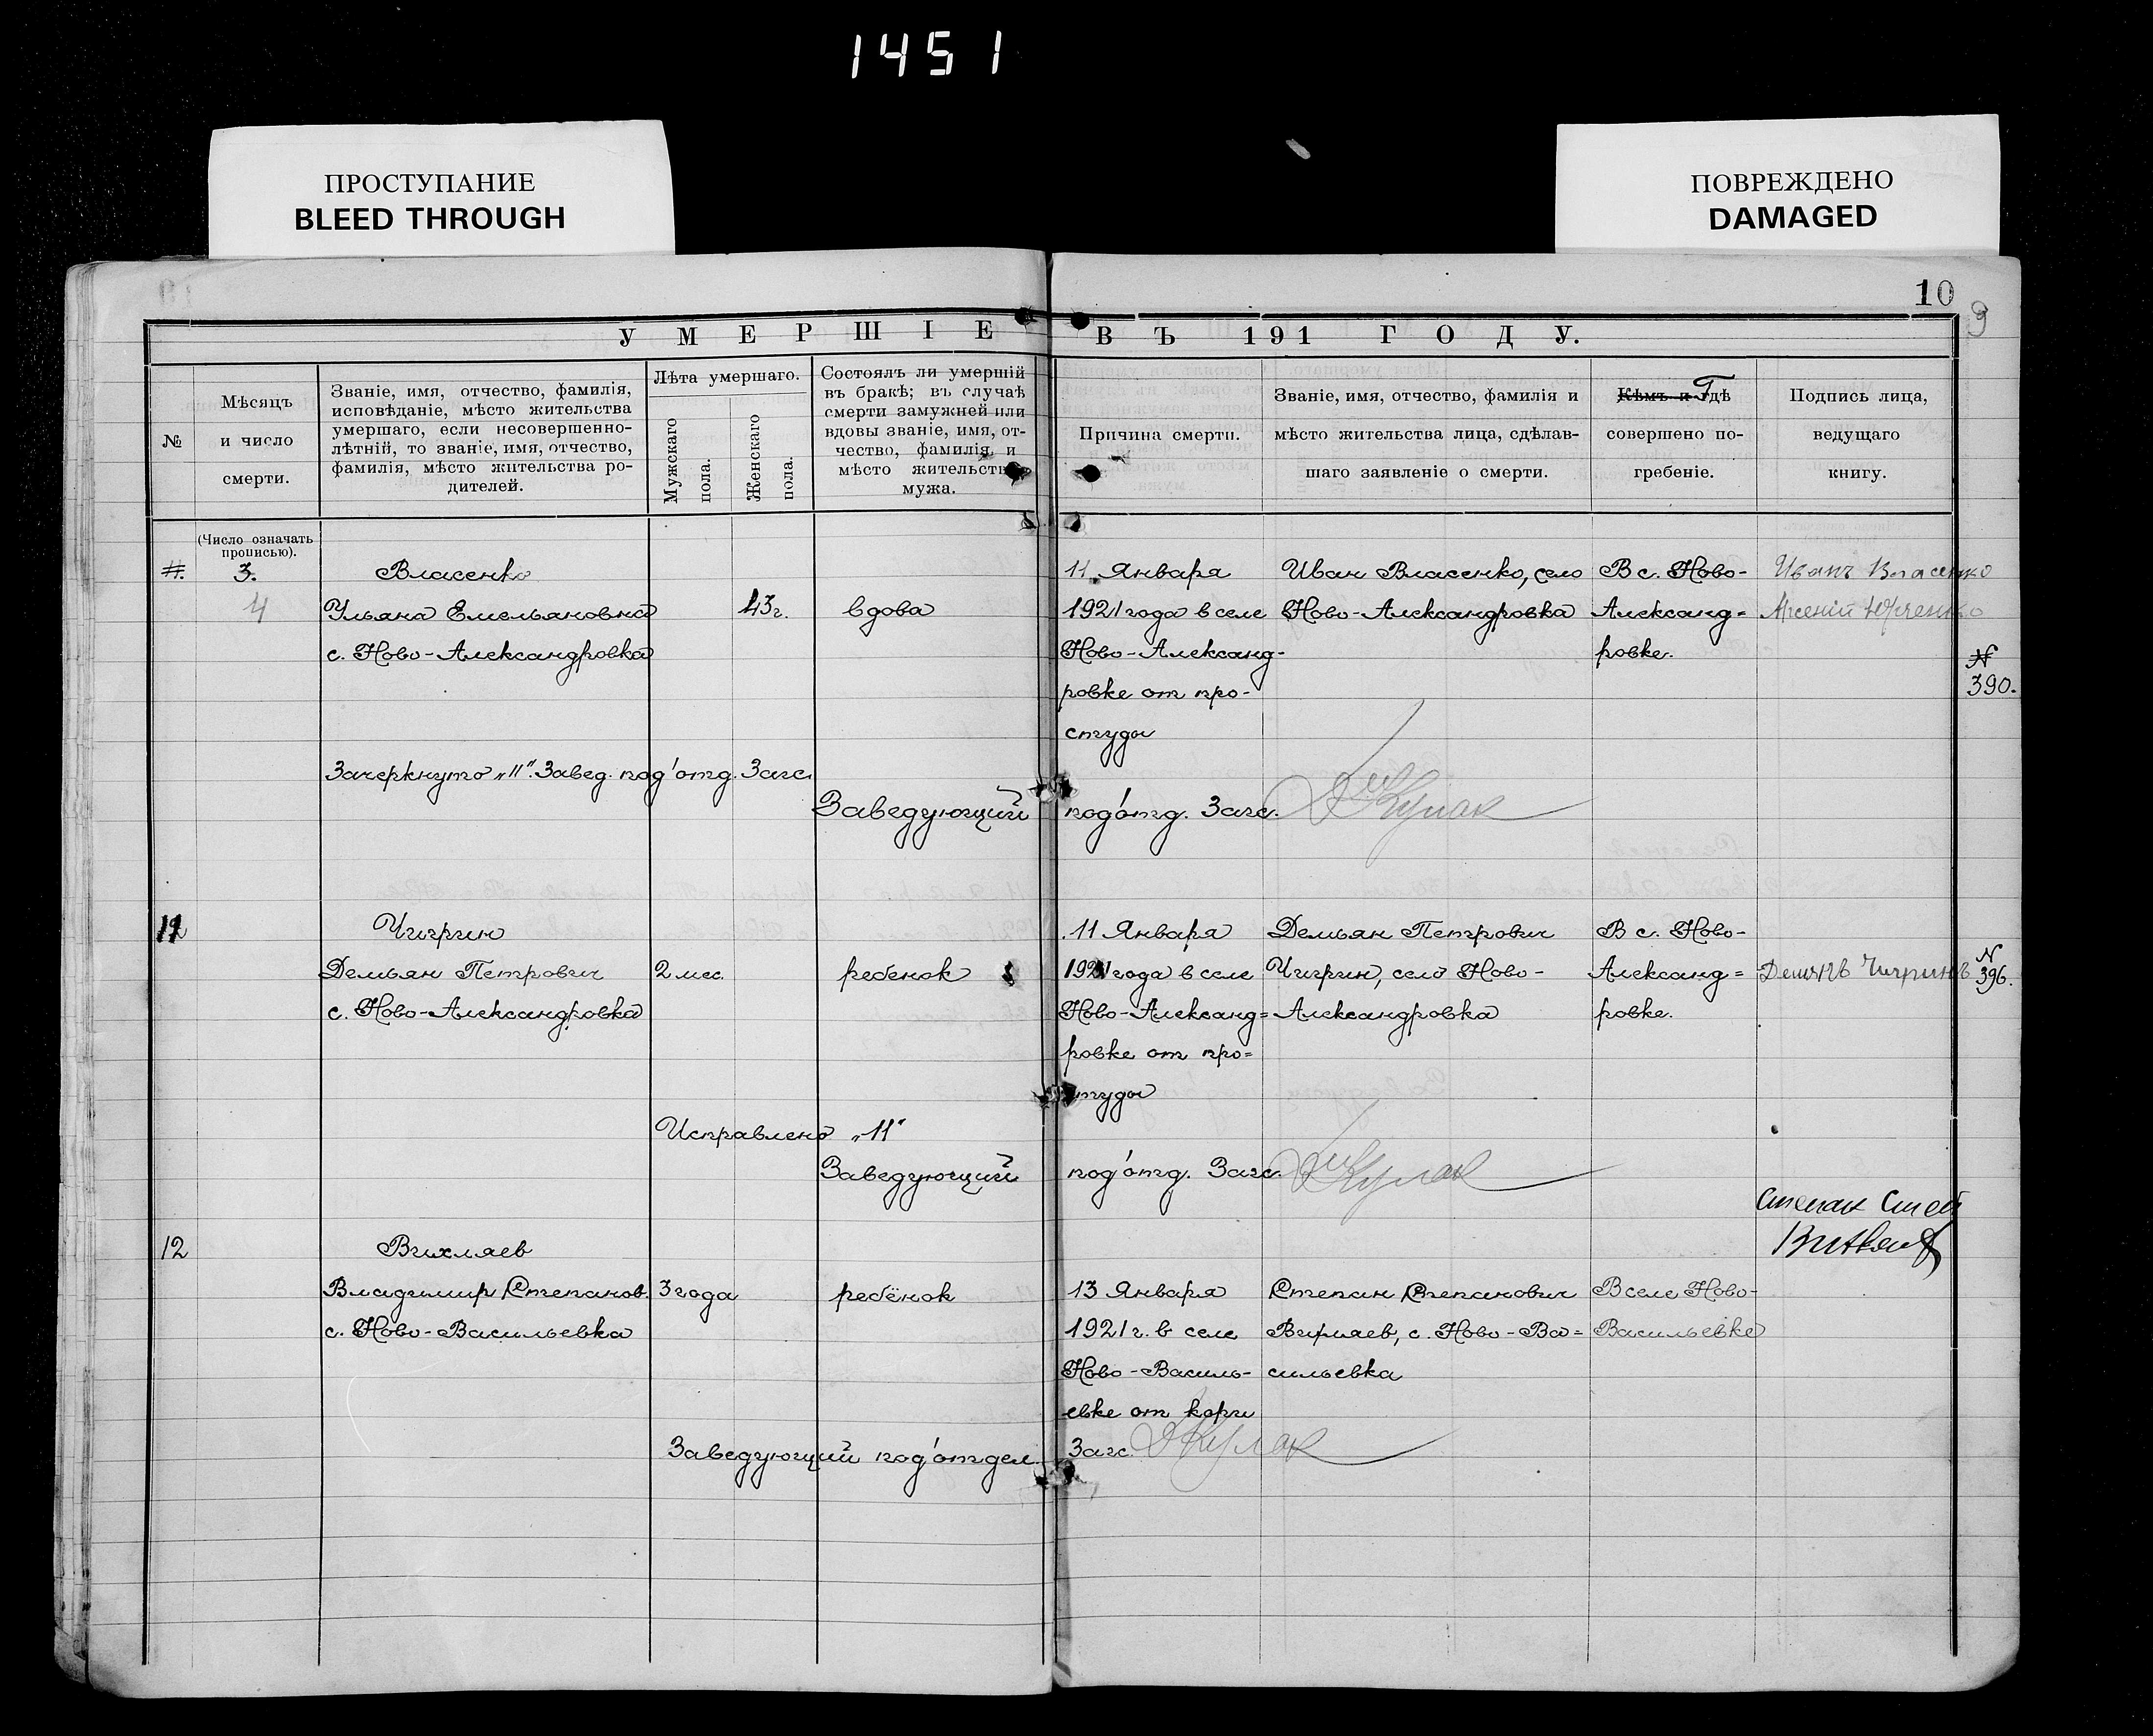 1451
ПРОСТУПАНИЕ
BLEED THROUGH
ПОВРЕЖДЕНО
DAMAGED
10
9
УМЕРШІЕ ВЪ 191 ГОДУ.
№
Мѣсяцъ
и число
смерти.
Званіе, имя, отчество, фамилія,
исповѣданіе, мѣсто жительства
умершаго, если несовершенно-
лѣтній, то званіе, имя, отчество,
фамилія, мѣсто жительства ро-
дителей.
Лѣта умершаго.
Мужскаго
пола.
Женскаго
пола.
Состоялъ ли умершій
въ бракѣ; въ случаѣ
смерти замужней или
вдовы званіе, имя, от-
чество, фамилія и
мѣсто жительства
мужа.
Причина смерти.
Званіе, имя, отчество, фамилія и
мѣсто жительства лица, сдѣлав-
шаго заявленіе о смерти.
Кѣмъ и Гдѣ
совершено по-
гребеніе.
Подпись лица,
ведущаго
книгу.
(Число означать
прописью).
11. 3.
4
Власенко
Ульяна Емельяновна
с. Ново-Александровка
43г.
вдова
11 Января
1921 года в селе
Ново-Александ-
ровке от про-
студы
Иван Власенко, село
Ново-Александровка
В с. Ново-
Александ=
ровке.
Иванъ Власенко
Арсеній
N
390.
Зачеркнуто „11". Завед. под'отд. Загс.
Заведующий под'отд. Загс. Кулак
11
Чигрин
Демьян Петрович
с. Ново-Александровка
2 мес.
ребенок
11 Января
1921 года в селе
Ново-Александ=
ровке от про=
студы
Демьян Петрович
Чигрин, село Ново-
Александровка
В с. Ново-
Александ=
ровке.
Демянъ Чигринъ
N
396.
Исправлено „11"
Заведующий под'отд. Загс. Кулак
12
Вихляев
Владимир Степанов.
с. Ново-Васильевка
3 года
ребёнок
13 Января
1921 г. в селе
Ново-Василь-
евке от кори
Степан Степанович
Вихляев, с. Ново-Ва=
сильевка
В селе Ново-
Васильевке
Степан
Заведующий под'отдел. Загс. Кулак